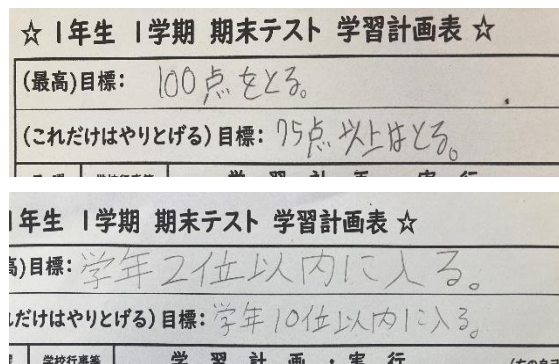 ☆ 1年生 1学期 期末テスト 学習計画表 ☆
(最高)目標: 100点をとる。
(これだけはやりとげる)目標: 75点以上はとる。
学 習 計 画 ・ 実 行
1年生 1学期 期末テスト 学習計画表 ☆
高)目標: 学年2位以内に入る。
だけはやりとげる)目標: 学年10位以内に入る。
学校行事等 学 習 計 画 ・ 実 行